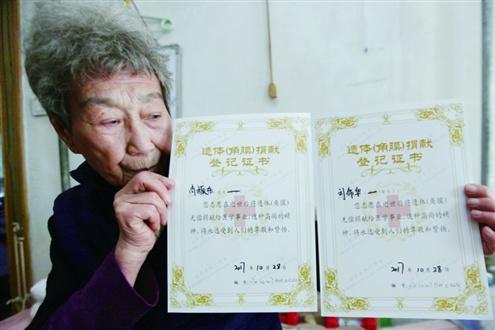 遗体(角膜)捐献
登记证书
您志愿在逝世后将遗体(角膜)
无偿捐献给医学事业,这种高尚的精
神,将永远受到人们的尊敬和赞扬。
2017年10月28日
编号:
遗体(角膜)捐献
登记证书
您志愿在逝世后将遗体(角膜)
无偿捐献给医学事业,这种高尚的精
神,将永远受到人们的尊敬和赞扬。
2017年10月28日
编号: